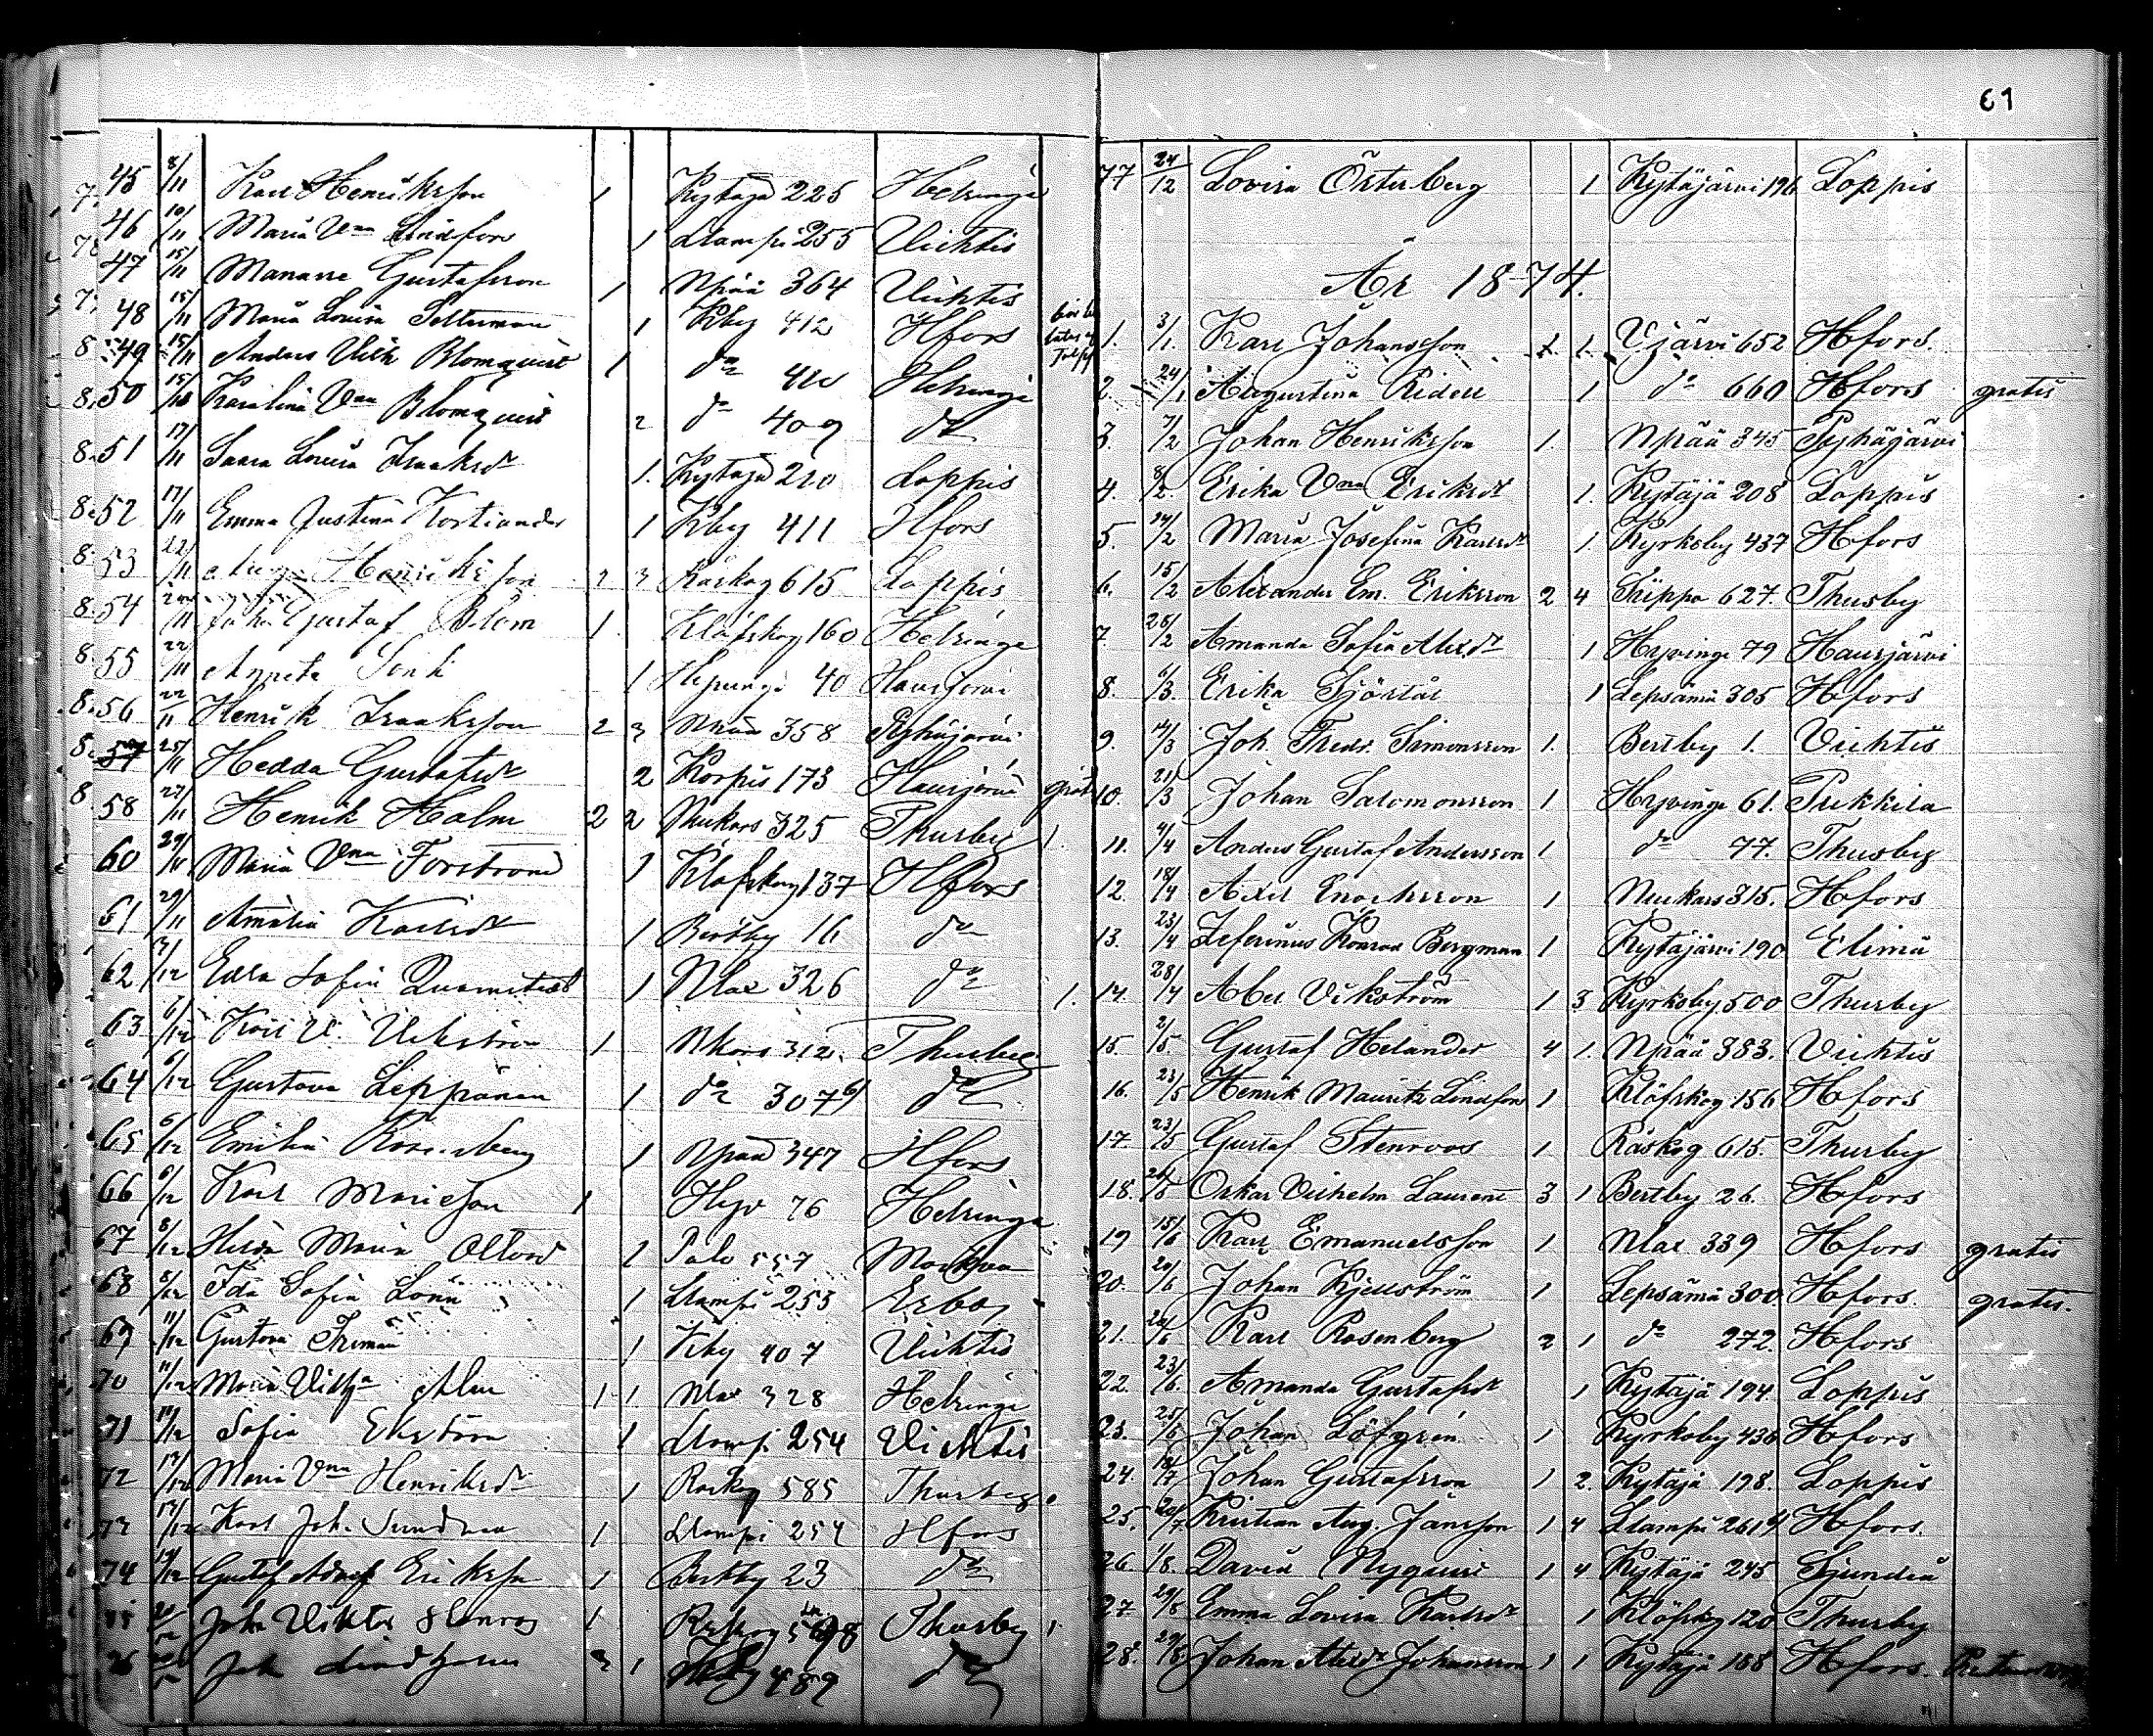 45 8/11 Karl Henriksson 1 Kytäjä 225 Helsinge
46 10/11 Maria Vma Lindfors 1 Stampi 255 Vichtis
47 15/11 Manasse Gustafsson 1 Npää 364 Vichtis
48 15/11 Maria Lovisa Selterman 1 Kby 412 Hfors
49 15/11 Anders Vilh Blomqvist 1 do 410 Helsinge
50 15/11 Karolina Vma Blomqvist 2 do 409 do
51 17/11 Saara Lovisa Isaaksdr 1. Kytäjä 210 Loppis
52 17/11 Emma Justina Kortiander 1 Kby 411 Hfors
53 22/11 Aug. Henriksson 2 3 Råskog 615 Loppis
54 22/11 Johan Gustaf Blom 1. Klöfskog 160 Helsinge
55 22/11 Agneta 1 Hyvinge 40 Hausjärvi
56 22/11 Henrik Isaaksson 2 3 Npää 358 Pyhäjärvi
57 25/11 Hedda Gustafsdr 2 Korpis 173 Hausjärvi grat
58 27/11 Henrik Holm 2 2 Nukars 325 Thusby
60 29/11 Maria Vma Forström 1 Klöfskog 137 Hfors
61 29/11 Amalia Karlsdr 1 Bertby 16 do
62 /12 Edla Sofia 1 Nlax 326 do
63 6/12 Karl V. Vikström 1 Nkars 312 Thusby
64 6/12 Gustava Leppänen 1 do 307 do
65 6/12 Emilia Rosenberg 1 Npää 347 Hfors
66 6/12 Karl Mariesson 1 Hyv 76 Helsinge
67 8/12 Hilda Maria 1 Palo 557
68 8/12 Ida Sofia Lönn 1 Stampi 253 Esbo
69 11/12 Gustava 1 Kby 407 Vichtis
70 11/12 Maria Vilhma Alm 1 1 Nlax 328 Helsinge
71 14/12 Sofia Ekström 1 Stampi 254 Vichtis
72 17/12 Maria Vma Henriksdr 1 Råskog 585 Thusby
73 17/12 Karl Joh. Sundman 1 Stampi 254 Hfors
74 19/12 Gustaf Adolf Eriksson 1 Bertby 23 do
75 Joh Viktor Stenroos 1 Råskog Thusby
76 Joh Lindholm 2 1 489 do
61
77 24/12 Lovisa Österberg 1 Kytäjärvi 196 Loppis
År 1874.
1. 3/1. Karl Johansson 1. 1. Vjärvi 652 Hfors.
2. 24/1 Augustina Ridell 1 do 660 Hfors gratis
3. 7/2 Johan Henriksson 1. Npää 345 Pyhäjärvi
4. 8/2. Erika Vma Eriksdr 1. Kytäjä 208 Loppis
5. 14/2 Maria Josefina Karlsdr 1. Kyrkoby 437 Hfors
6. 15/2 Alexander Em. Eriksson 2 4 Skippo 627. Thusby
7 28/2 Amanda Sofia Alexdr 1 Hyvinge 79 Hausjärvi
8. 6/3. Erika Sjöstål 1 Lepsämä 305 Hfors
9. 14/3 Joh. Fredr. Simonsson 1. Bertby 1. Vichtis
10. 21/3 Johan Salomonsson 1 Hyvinge 61. Prikkila
11. 4/4 Anders Gustaf Andersson 1 do 77. Thusby
12. 18/4 Axel Enochsson 1 Nukars 315. Hfors
13. 23/4 Seferinus Konrad Bergman 1 Kytäjärvi 190 Elimä
14. 28/4 Abel Vikström 1 3 Kyrkoby 500 Thusby
15. 2/5. Gustaf Helander 4 1. Npää 383. Vichtis
16. 23/5 Henrik Mauritz Lindfors 1 Klöfskog 156 Hfors
17. 23/5 Gustaf Stenroos 1 Råskog 615. Thusby
18. Oskar Vilhelm Laurent 3 1 Bertby 26. Hfors
19 15/6 Karl Emanuelsson 1 Nlax 339 Hfors gratis
20. 20/6 Johan Kjellström 1 Lepsämä 300 Hfors. gratis.
21. Karl Rosenberg 2 1 do 272. Hfors
22. 23/6. Amanda Gustafsdr 1 Kytäjä 194. Loppis
23. 25/6 Johan Löfgren 1 Kyrkoby 436 Hfors
24. 12/7 Johan Gustafsson 1 2. Kytäjä 198. Loppis
25. 20/7 Kristian Aug. Jansson 1 4 Stampi 261 Hfors.
26. 1/8. David Nyqvist 1 4 Kytäjä 245 Sjundeå
27 29/8 Emma Lovisa Karlsdr 1 Klöfskog 120 Thusby
28. 29/8. Johan Alexdr Johansson 1 1 Kytäjä 188 Hfors.